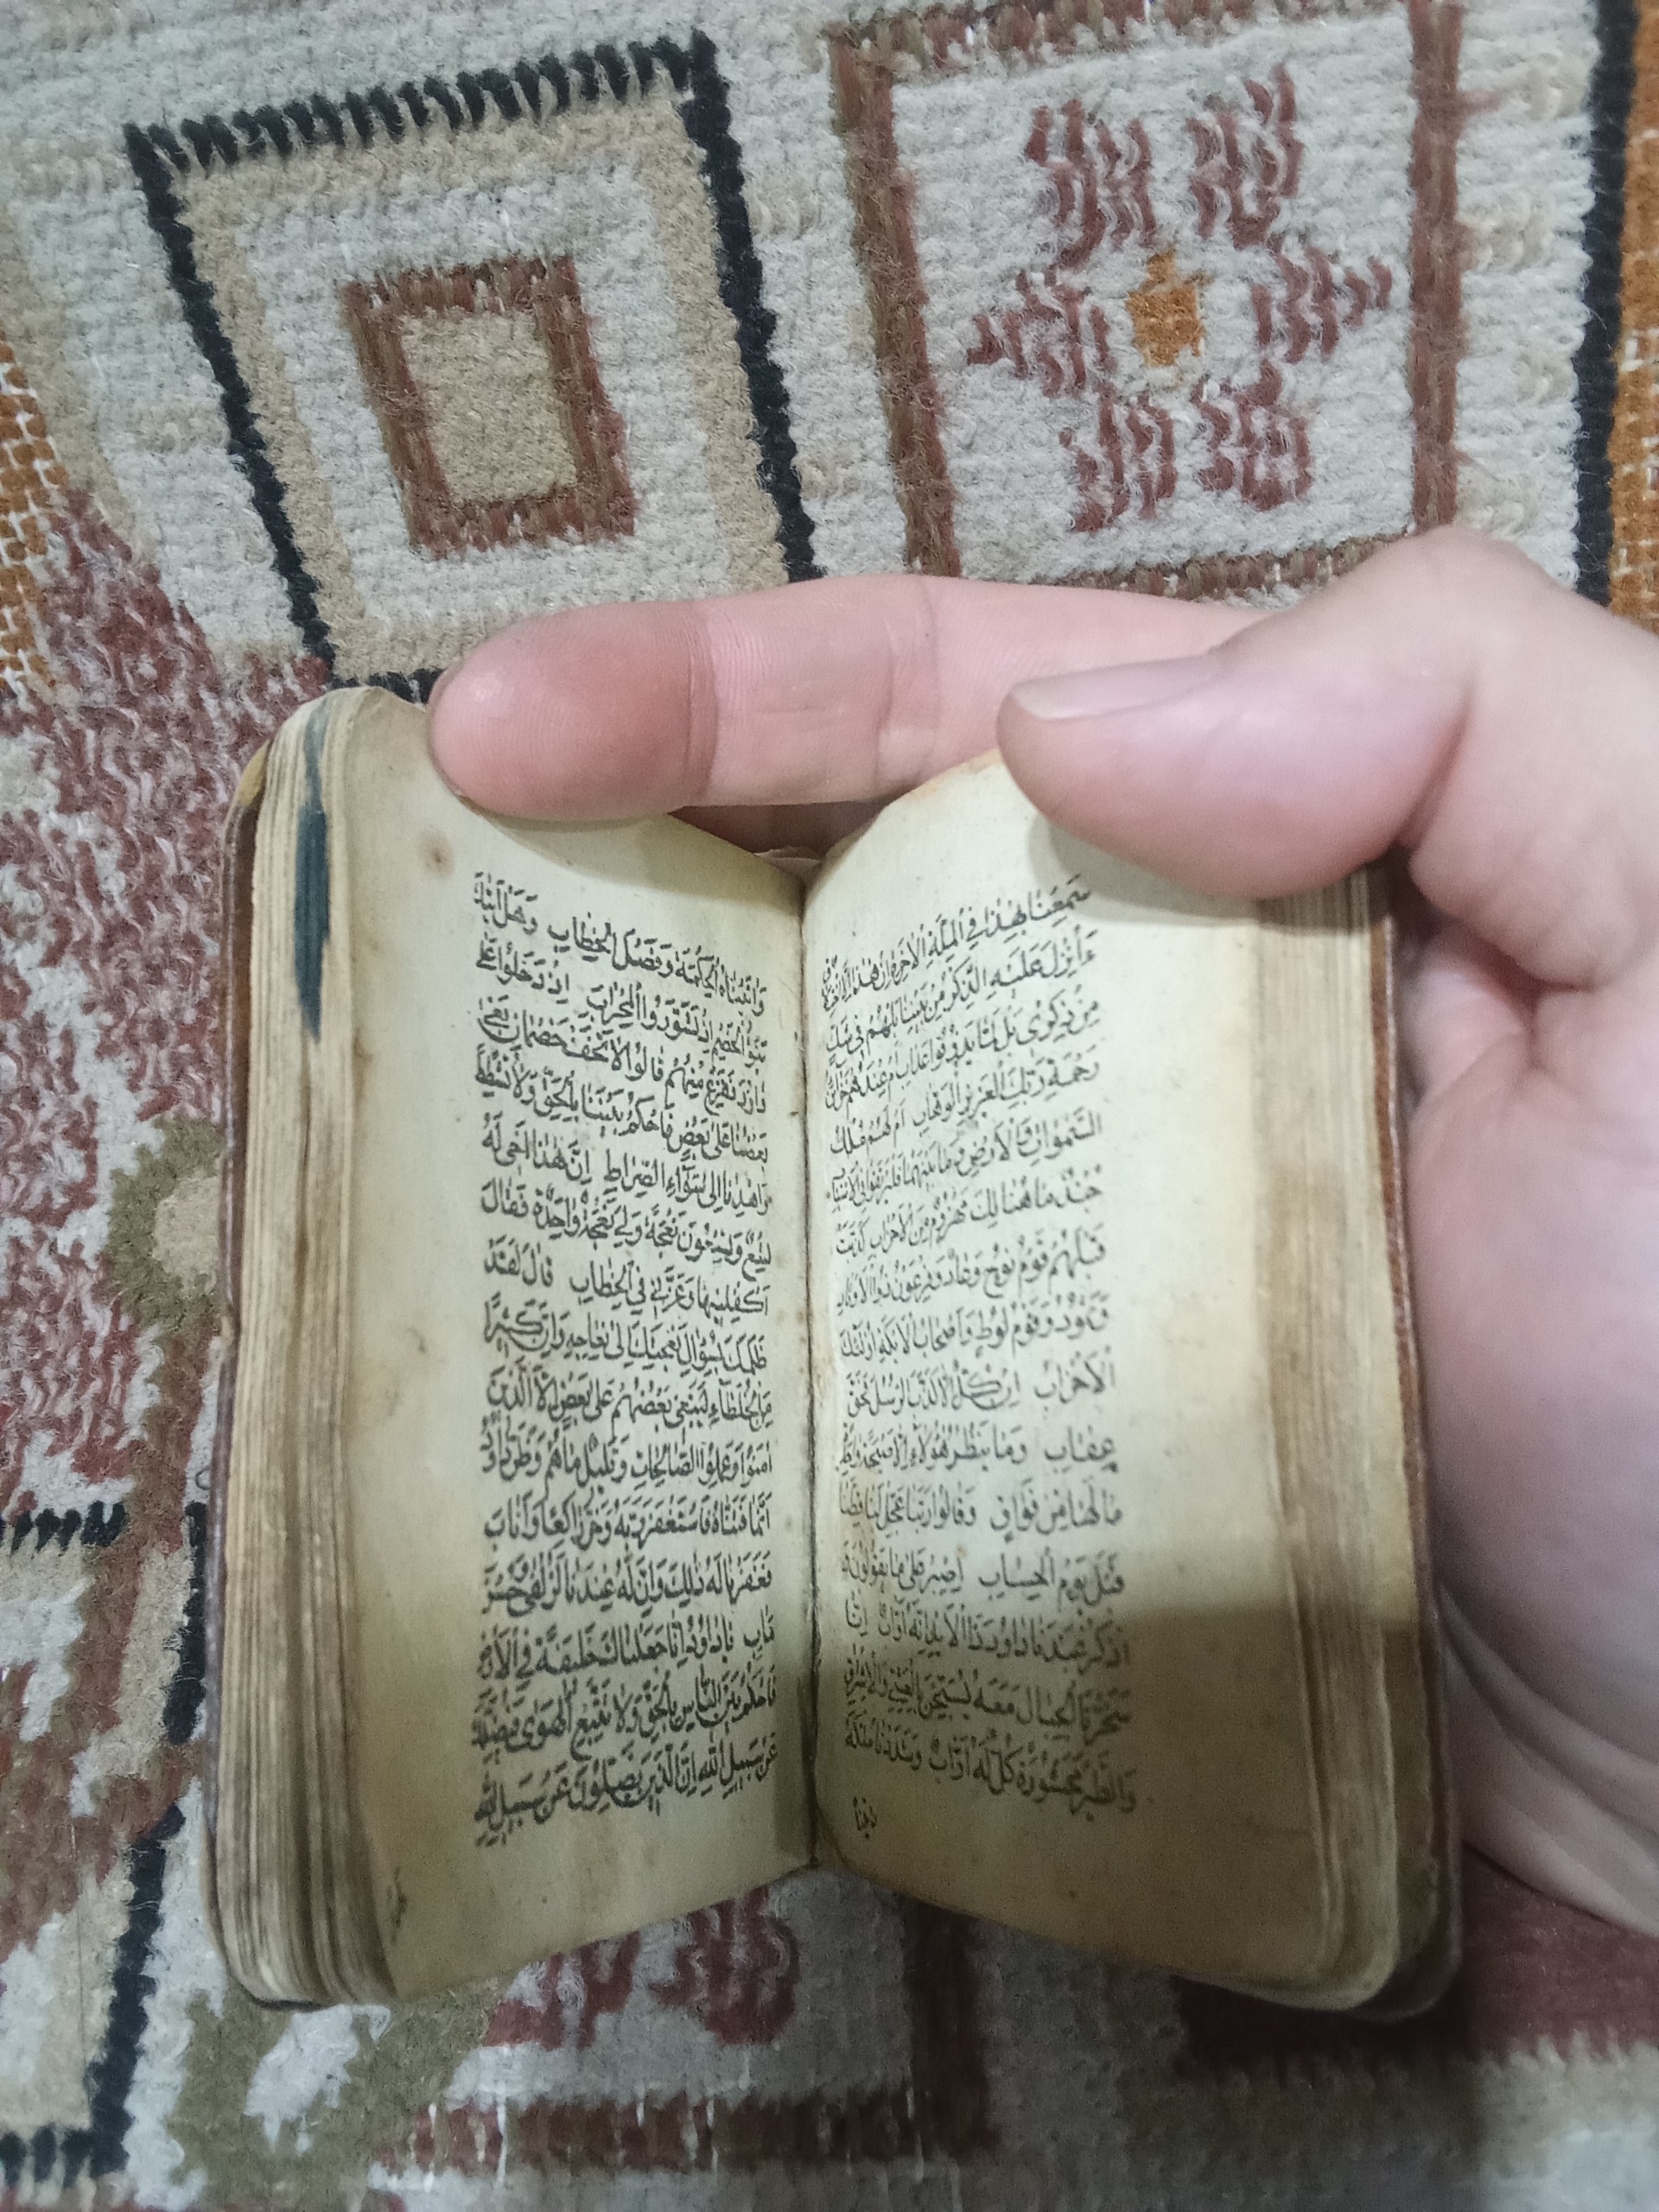 سَمِعْنَا بِهٰذَا فِي الْمِلَّةِ الْاٰخِرَةِ اِنْ هٰذَا اِلَّا اخْتِلَاقٌ
ءَاُنْزِلَ عَلَيْهِ الذِّكْرُ مِنْ بَيْنِنَا بَلْ هُمْ فِي شَكٍّ
مِنْ ذِكْرِى بَلْ لَمَّا يَذُوقُوا عَذَابِ اَمْ عِنْدَهُمْ خَزَائِنُ
رَحْمَةِ رَبِّكَ الْعَزِيزِ الْوَهَّابِ اَمْ لَهُمْ مُلْكُ
السَّمٰوَاتِ وَالْاَرْضِ وَمَا بَيْنَهُمَا فَلْيَرْتَقُوا فِي الْاَسْبَابِ
جُنْدٌ مَا هُنَالِكَ مَهْزُومٌ مِنَ الْاَحْزَابِ كَذَّبَتْ
قَبْلَهُمْ قَوْمُ نُوحٍ وَعَادٌ وَفِرْعَوْنُ ذُوالْاَوْتَادِ
وَثَمُودُ وَقَوْمُ لُوطٍ وَاَصْحَابُ لْاَيْكَةِ اُولٰئِكَ
الْاَحْزَابُ اِنْ كُلٌّ اِلَّا كَذَّبَ الرُّسُلَ فَحَقَّ
عِقَابِ وَمَا يَنْظُرُ هٰؤُلَاءِ اِلَّا صَيْحَةً وَاحِدَةً
مَا لَهَا مِنْ فَوَاقٍ وَقَالُوا رَبَّنَا عَجِّلْ لَنَا قِطَّنَا
قَبْلَ يَوْمِ الْحِسَابِ اِصْبِرْ عَلٰى مَا يَقُولُونَ وَ
اذْكُرْ عَبْدَنَا دَاوُدَ ذَا الْاَيْدِ اِنَّهُ اَوَّابٌ اِنَّا
سَخَّرْنَا الْجِبَالَ مَعَهُ يُسَبِّحْنَ بِالْعَشِيِّ وَالْاِشْرَاقِ
وَالطَّيْرَ مَحْشُورَةً كُلٌّ لَهُ اَوَّابٌ وَشَدَدْنَا مُلْكَهُ
وَاٰتَيْنَاهُ الْحِكْمَةَ وَفَصْلَ الْخِطَابِ وَهَلْ اَتٰيكَ
نَبَؤُا الْخَصْمِ اِذْ تَسَوَّرُوا الْمِحْرَابَ اِذْ دَخَلُوا عَلٰى
دَاوُدَ فَفَزِعَ مِنْهُمْ قَالُوا لَا تَخَفْ خَصْمَانِ بَغٰى
بَعْضُنَا عَلٰى بَعْضٍ فَاحْكُمْ بَيْنَنَا بِالْحَقِّ وَلَا تُشْطِطْ
وَاهْدِنَا اِلٰى سَوَاءِ الصِّرَاطِ اِنَّ هٰذَا اَخِى لَهُ
تِسْعٌ وَتِسْعُونَ نَعْجَةً وَلِيَ نَعْجَةٌ وَاحِدَةٌ فَقَالَ
اَكْفِلْنِيهَا وَعَزَّنِي فِي الْخِطَابِ قَالَ لَقَدْ
ظَلَمَكَ بِسُؤَالِ نَعْجَتِكَ اِلٰى نِعَاجِهِ وَاِنَّ كَثِيرًا
مِنَ الْخُلَطَاءِ لَيَبْغِى بَعْضُهُمْ عَلٰى بَعْضٍ اِلَّا الَّذِينَ
اٰمَنُوا وَعَمِلُوا الصَّالِحَاتِ وَقَلِيلٌ مَا هُمْ وَظَنَّ دَاوُدُ
اَنَّمَا فَتَنَّاهُ فَاسْتَغْفَرَ رَبَّهُ وَخَرَّ رَاكِعًا وَاَنَابَ
فَغَفَرْنَا لَهُ ذٰلِكَ وَاِنَّ لَهُ عِنْدَنَا لَزُلْفٰى وَحُسْنَ
مَاٰبٍ يَا دَاوُدُ اِنَّا جَعَلْنَاكَ خَلِيفَةً فِي الْاَرْضِ
فَاحْكُمْ بَيْنَ النَّاسِ بِالْحَقِّ وَلَا تَتَّبِعِ الْهَوٰى فَيُضِلَّكَ
عَنْ سَبِيلِ اللّٰهِ اِنَّ الَّذِينَ يَضِلُّونَ عَنْ سَبِيلِ اللّٰهِ